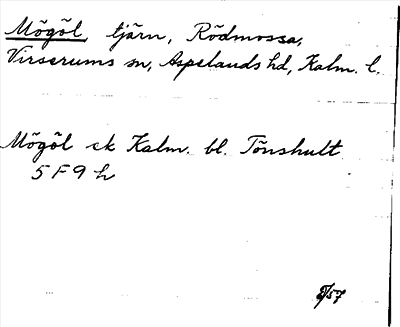 Mögöl, tjärn, Rödmossa,
Virserums sn, Aspelands hd, Kalm. l.
Mögöl ek Kalm. bl. Tönshult
5 F 9 h
57